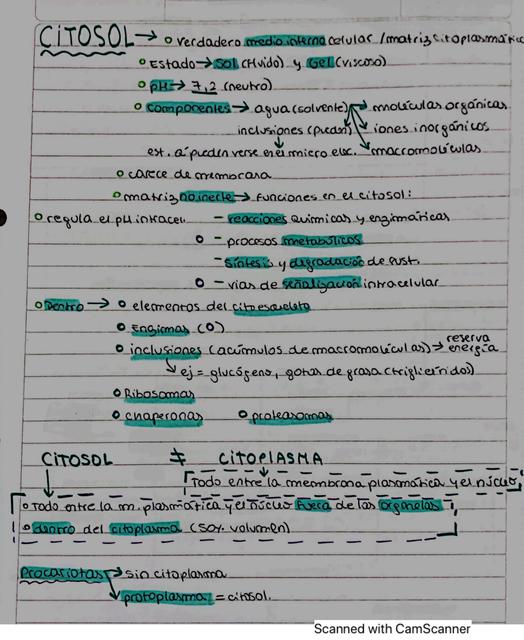 CITOSOL → o verdadero medio interno celular / matriz citoplasmática
o Estado → Sol (fluido) y Gel (viscoso)
o pH → 7,2 (neutro)
o componentes → agua (solvente) → moléculas orgánicas
inclusiones (pueden) → iones inorgánicos
est. q' pueden verse en el micro elec. → macromoléculas
o carece de membrana
o matriz no inerte → funciones en el citosol:
o regula el pH intracel. - reacciones químicas y enzimáticas
o - procesos metabólicos
- síntesis y degradación de sust.
o - vías de señalización intracelular
o Dentro → o elementos del citoesqueleto
o Enzimas (o)
o inclusiones (acúmulos de macromoléculas) → reserva energía
ej = glucógeno, gotas de grasa (triglicéridos)
o Ribosomas
o chaperonas o proteasomas
CITOSOL ≠ CITOPLASMA
Todo entre la membrana plasmática y el núcleo
o Todo entre la m. plasmática y el núcleo fuera de las organelas
o dentro del citoplasma (50% volumen)
Procariotas → sin citoplasma
protoplasma = citosol.
Scanned with CamScanner